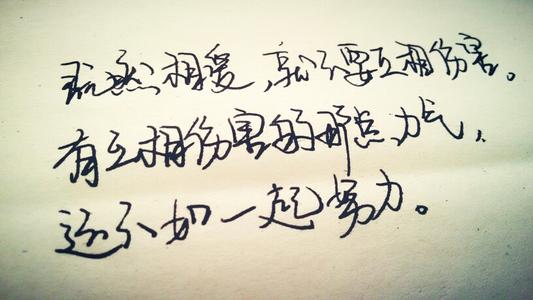 既然相爱，就不要互相伤害。
有互相伤害的那点力气，
还不如一起努力。